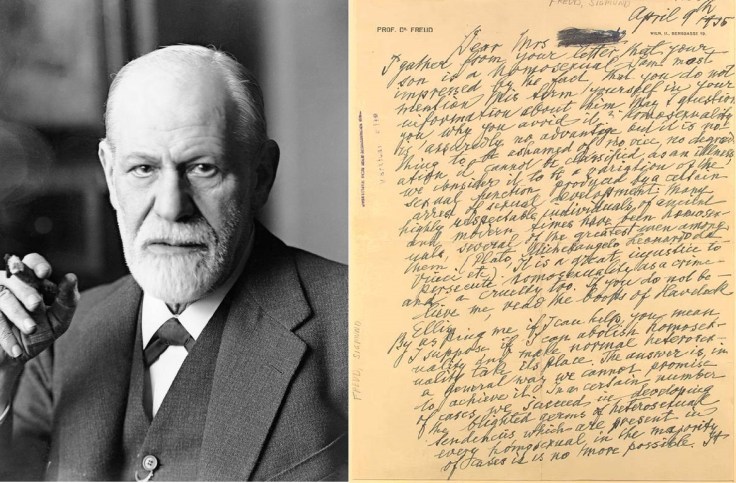 FREUD, SIGMUND
April 9th 1935
PROF. Dr FREUD
WIEN, IX., BERGGASSE 19.
Dear Mrs
I gather from your letter that your
son is a homosexual. I am most
impressed by the fact that you do not
mention this term yourself in your
information about him. May I question
you why you avoid it? Homosexuality
is assuredly no advantage but it is no
thing to be ashamed of, no vice, no degrad
ation, it cannot be classified as an illness;
we consider it to be a variation of the
sexual function produced by a certain
arrest of sexual development. Many
highly respectable individuals of ancient
and modern times have been homosex-
uals, several of the greatest men among
them (Plato, Michelangelo, Leonardo da
Vinci, etc). It is a great injustice to
persecute homosexuality as a crime
and a cruelty too. If you do not be-
lieve me, read the books of Havelock
Ellis.
By asking me if I can help, you mean
I suppose if I can abolish homosex-
uality and make normal heterosex-
uality take its place. The answer is, in
a general way we cannot promise
to achieve it. In a certain number
of cases we succeed in developing
the blighted germs of heterosexual
tendencies which are present in
every homosexual, in the majority
of cases it is no more possible. It
FREUD, SIGMUND